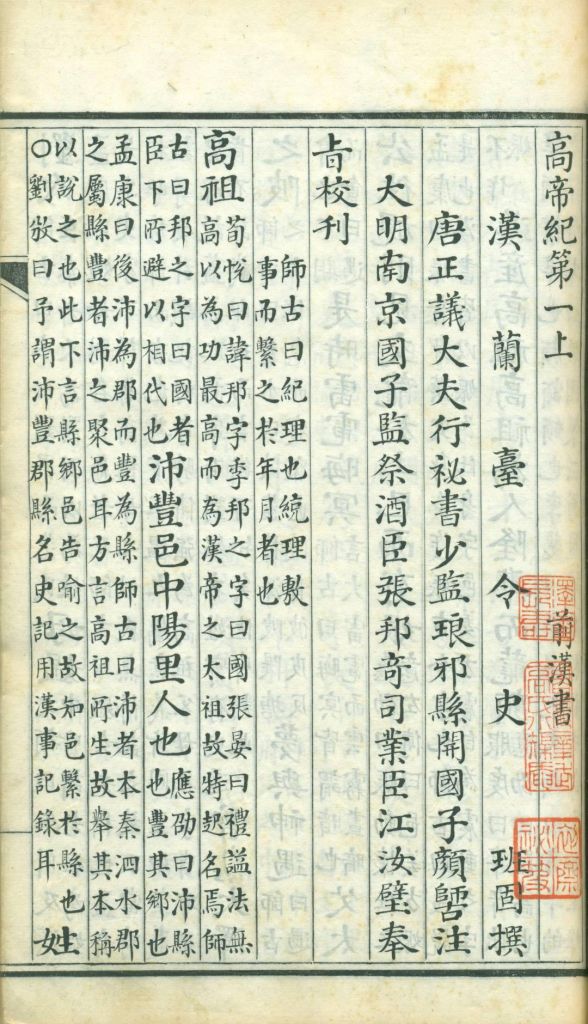 高帝紀第一上 前漢書
漢 蘭臺令史 班固撰
唐正議大夫行祕書少監琅邪縣開國子顏師古注
大明南京國子監祭酒臣張邦奇司業臣江汝璧奉
旨校刊
師古曰紀理也統理敷
事而繫之於年月者也
高祖荀悅曰諱邦字季邦之字曰國張晏曰禮謚法無
高以為功最高而為漢帝之太祖故特起名焉師
古曰邦之字曰國者
臣下所避以相代也沛豐邑中陽里人也應劭曰沛縣
也豐其鄉也
孟康曰後沛為郡而豐為縣師古曰沛者本秦泗水郡
之屬縣豐者沛之聚邑耳方言高祖所生故舉其本稱
以說之也此下言縣鄉邑告喻之故知邑繫於縣也
○劉攽曰予謂沛豐郡縣名史記用漢事記錄耳姓